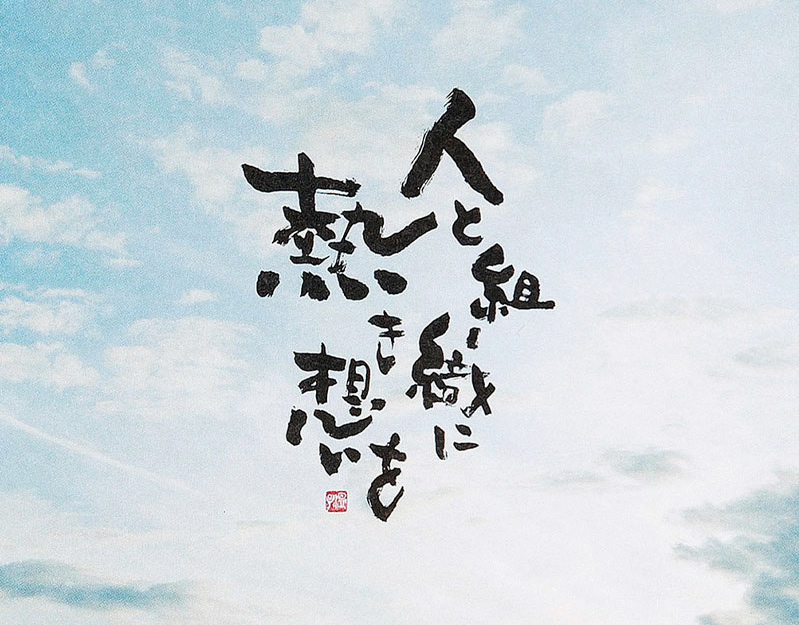 人と組織に
熱き想を